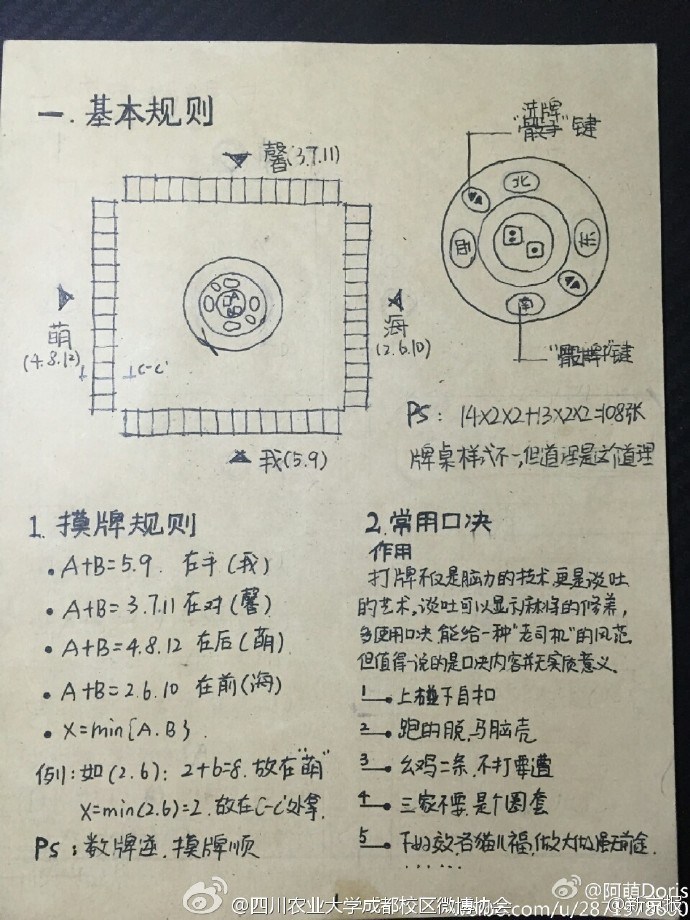 一.基本规则
馨(3.7.11)
萌
(4.8.12)
海
(2.6.10)
C-C'
我(5.9)
洗牌
"骰子"键
北
西
东
南
键
PS: 14×2×2+13×2×2=108张
牌桌样式不一,但道理是这个道理
1.摸牌规则
• A+B=5.9. 在手(我)
• A+B=3.7.11 在对(馨)
• A+B=4.8.12 在后(萌)
• A+B=2.6.10 在前(海)
• X=min{A.B}
例1:如(2.6): 2+6=8. 放在"萌"
X=min(2.6)=2. 放在C-C'处拿.
PS:数牌逆.摸牌顺
2.常用口决
作用
打牌不仅是脑力的技术,更是谈吐
的艺术,谈吐可以显示麻将的修养,
多使用口决 能给一种"老司机"的风范
但值得一说的是口决内容并无实质意义.
1 上碰下自扣
2 跑的脱,马脑壳
3 幺鸡二条,不打要遭
4 三家不要,是个圈套
5
......
@四川农业大学成都校区微博协会
@阿萌Doris
@新京报